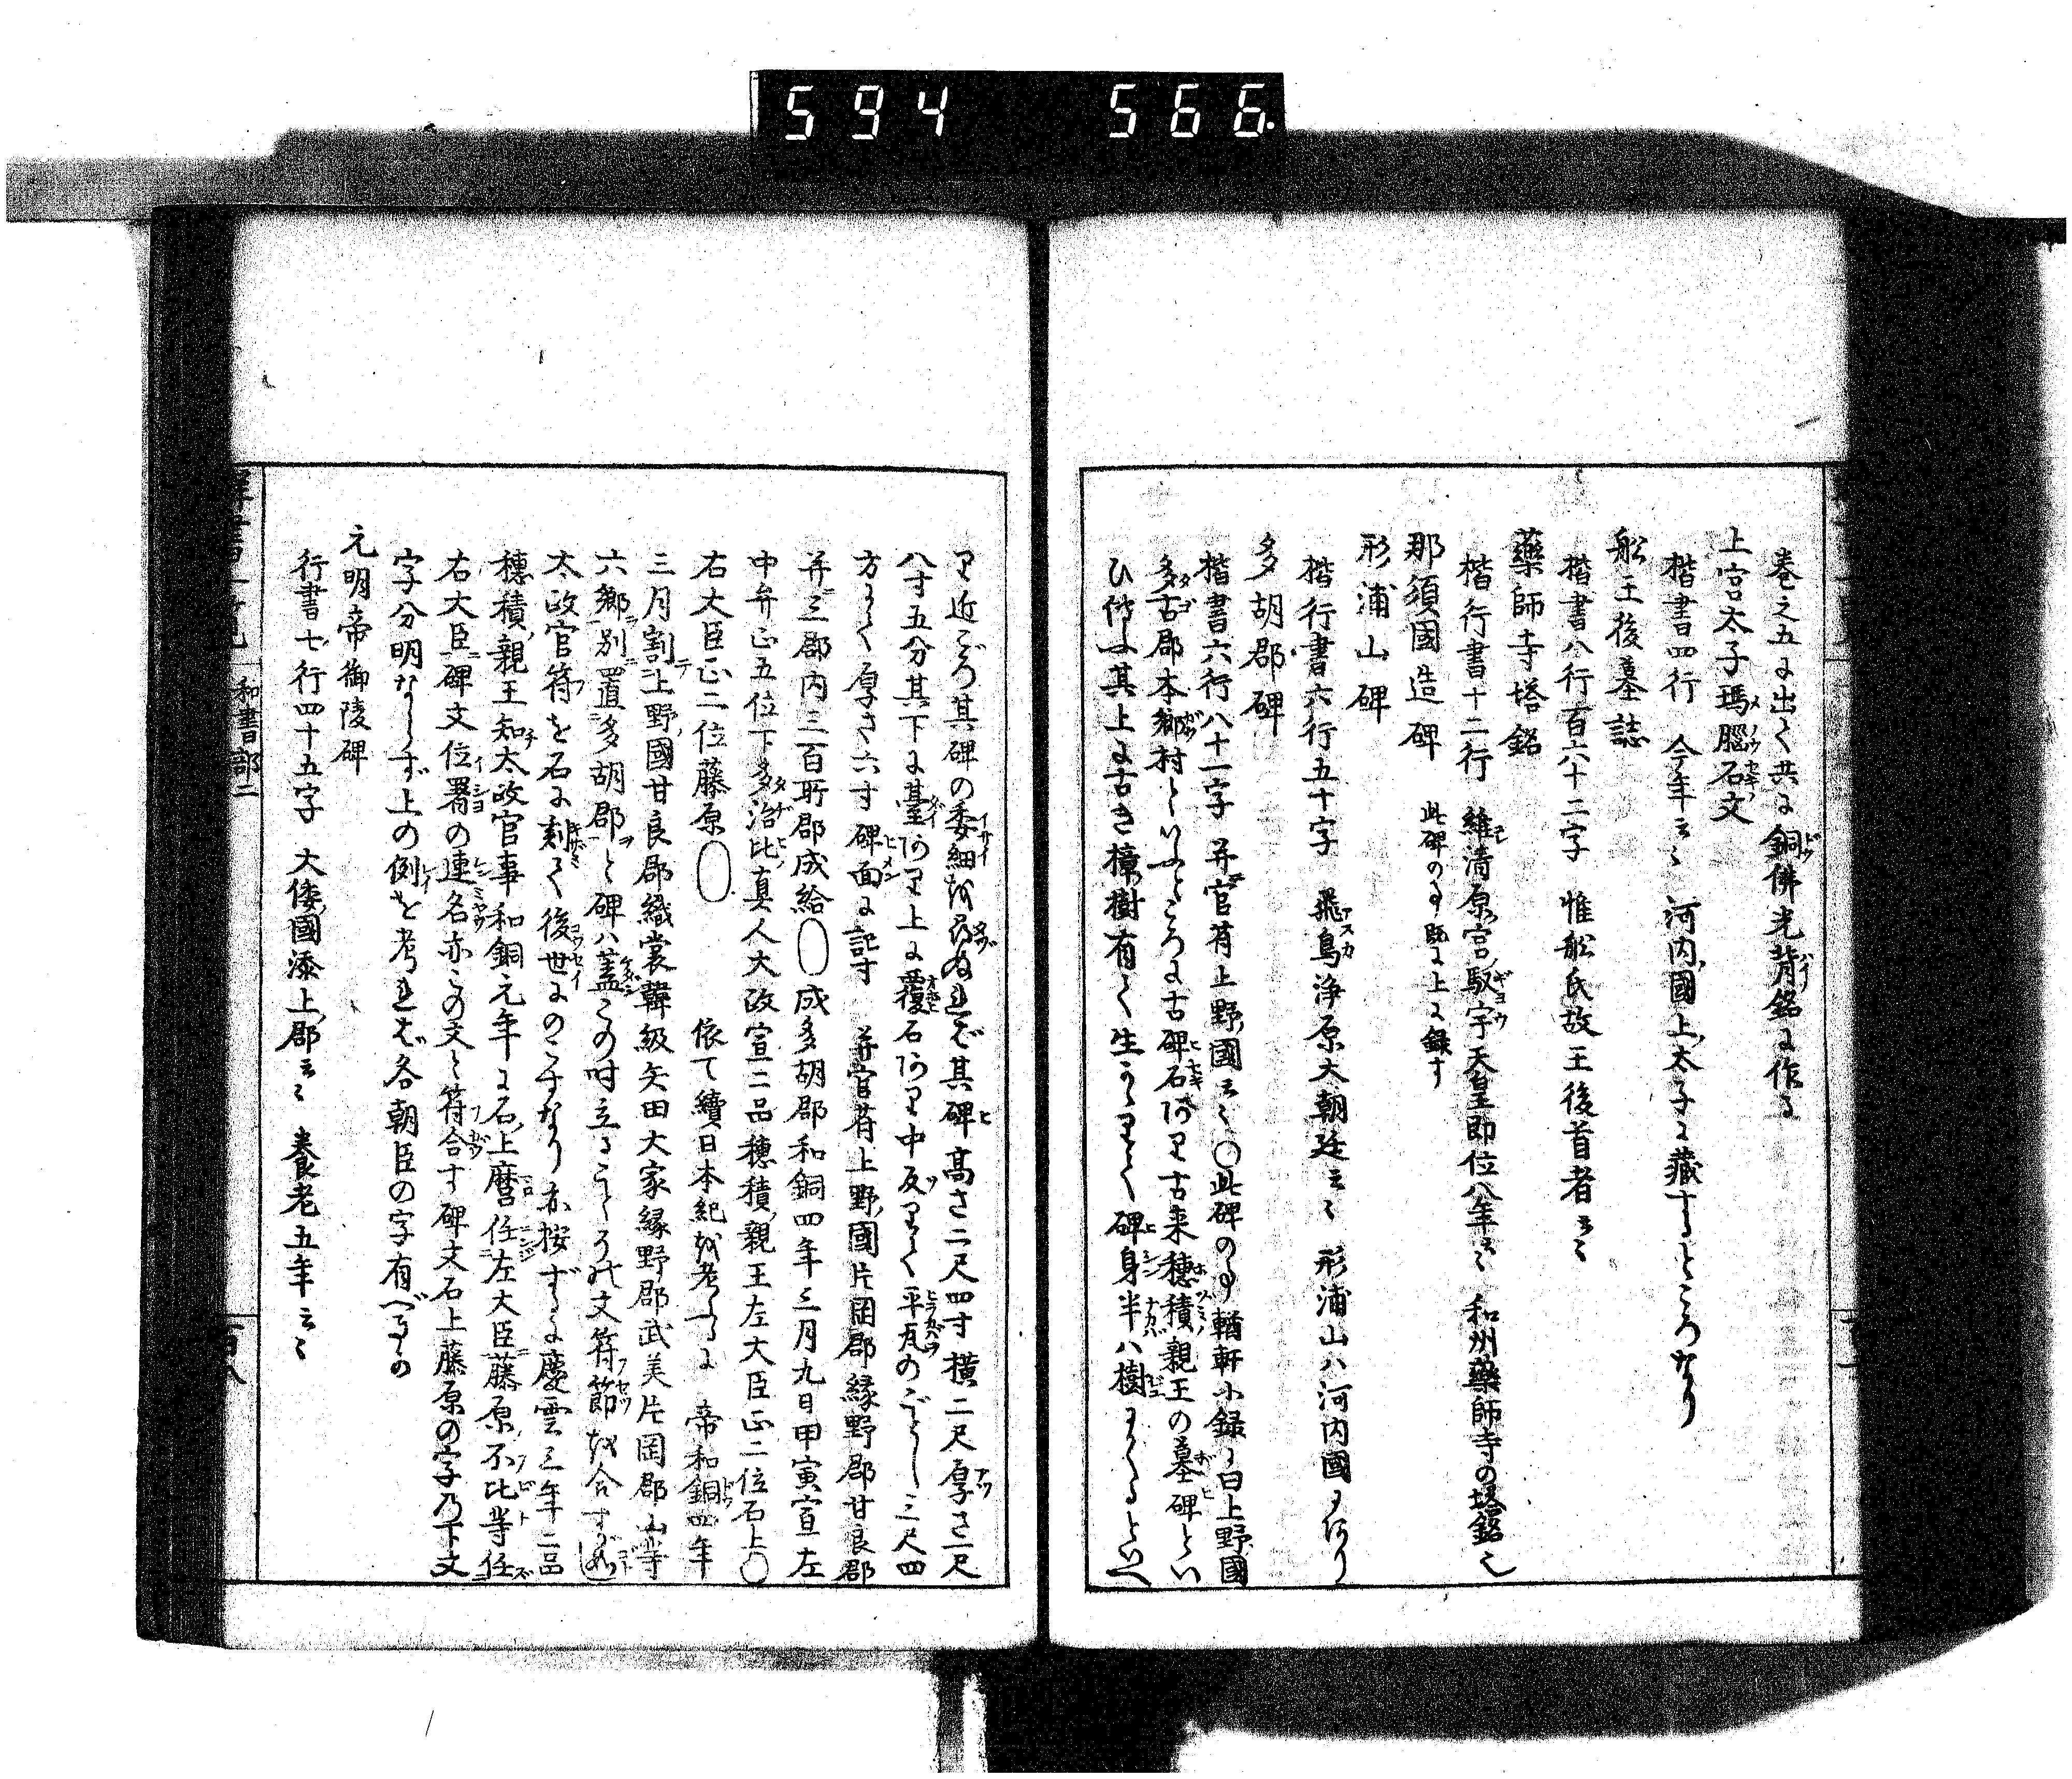 594 566
巻之五に出て共に銅佛光背銘に作る
上宮太子瑪腦石文
楷書四行 今年云々 河内國上太子に藏するところなり
船王後墓誌
楷書八行百六十二字 惟船氏故王後首者云々
藥師寺塔銘
楷行書十二行 維清原宮馭宇天皇即位八年云々 和州藥師寺の塔銘也
那須國造碑 此碑の事既に上に録す
形浦山碑
楷行書六行五十字 飛鳥浄原大朝廷云々 形浦山ハ河内國に有り
多胡郡碑
楷書六行八十一字 弁官苻上野國云々〇此碑の事輶軒小録ニ曰上野國
多古郡本郷村といふところに古碑石アリ古来穗積親王の墓碑とい
ひ伝ふ其上に古き樟樹有て生かゝりて碑身半ハ樹にくるといへ
り近ごろ其碑の委細を尋ぬれば其碑高さ二尺四寸横二尺厚さ一尺
八寸五分其下に臺アリ上に覆石アリ中反りて平瓦のごとし三尺四
方にて厚さ六寸碑面に記す 弁官苻上野國片罡郡緑野郡甘良郡
并三郡内三百戸郡成給〇成多胡郡和銅四年三月九日甲寅宣左
中弁正五位下多治比真人大政宣二品穗積親王左大臣正二位石上〇
右大臣正二位藤原〇 依て續日本紀を考ふるに 帝和銅四年
三月割上野國甘良郡織裳韓級矢田大家緑野郡武美片罡郡山等
六郷別置多胡郡と碑ハ蓋この時立るところの文符節を合するがごとし
太政官符を石に刻て後世にのこすなり亦按ずるに慶雲三年二品
穗積親王知太政官事和銅元年に石上麿任左大臣藤原不比等任
右大臣碑文位署の連名亦この文と符合す碑文石上藤原の字乃下文
字分明ならず上の例を考れば各朝臣の字有べきの
元明帝御陵碑
行書七行四十五字 大倭國添上郡云々 養老五年云々
和書部二
百八